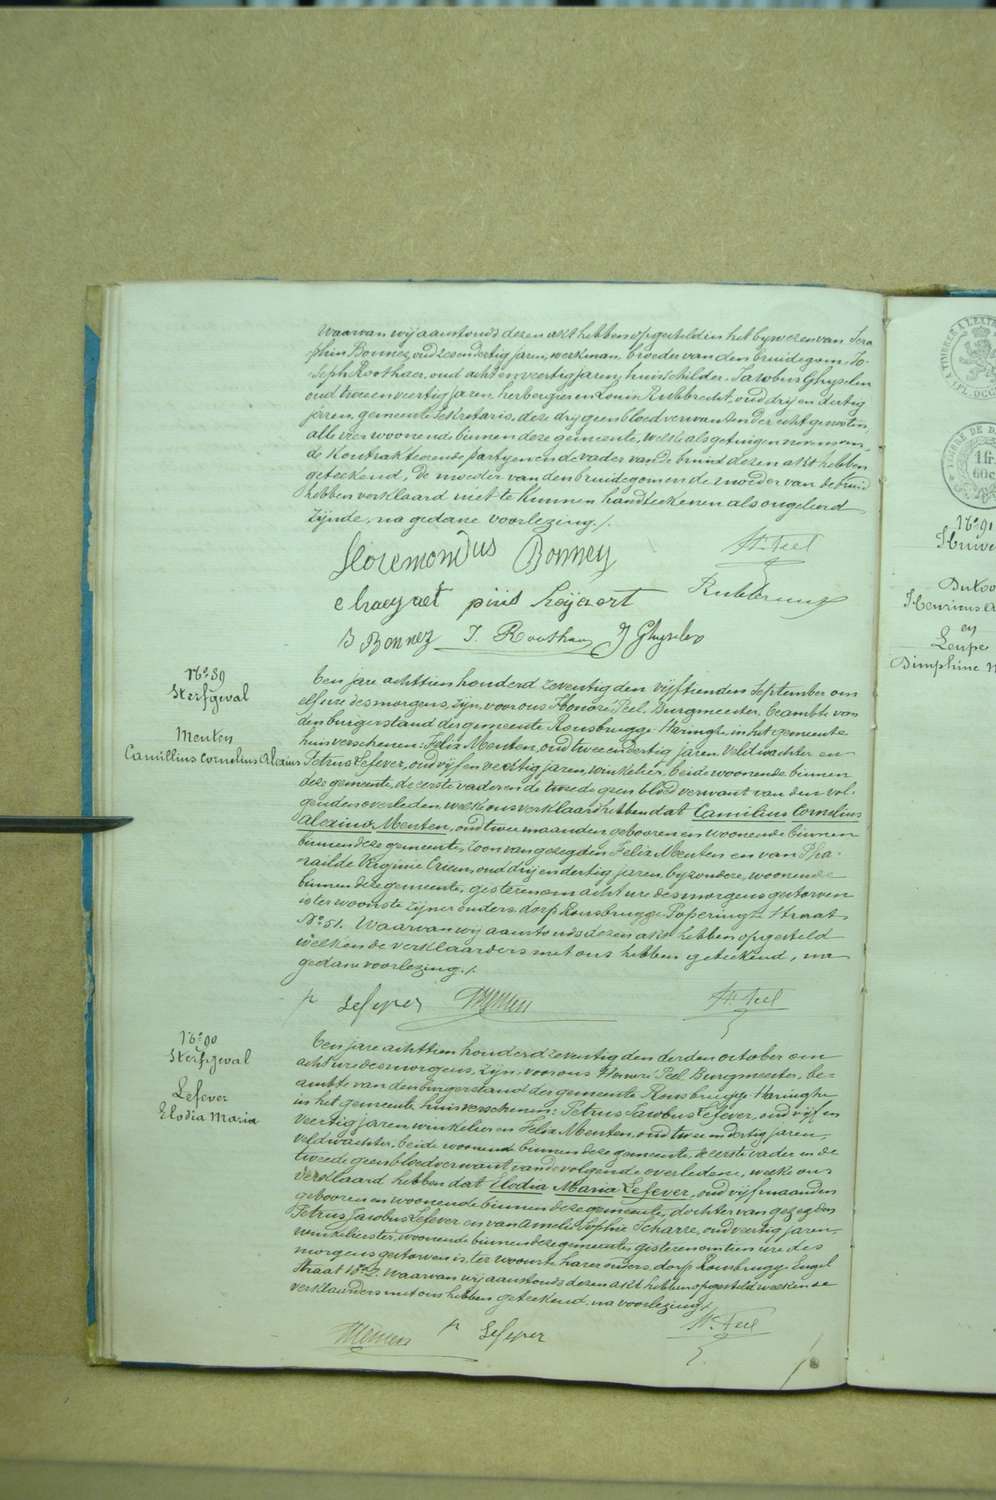 Waarvan wij aanstonds dezen akt hebben opgesteld in het bywezen van Sera
phin Bonnez, oud zesendertig jaren, werkman, broeder van den bruidegom, Jo-
seph Roothaer, oud achtenveertig jaren, huisschilder, Jacobus Ghyselen
oud tweeenveertig jaren, herbergier en Louis Rubbrecht, oud dry en dertig
jaren, gemeente sekretaris, deze dry geen bloedverwant der echtgenoten,
alle vier woonende binnen deze gemeente, welke als getuigen
de kontrakteerende partyen en de vader van de bruid dezen akt hebben
geteekend, De moeder van den bruidegom en de moeder van de bruid
hebben verklaard niet te kunnen handteekenen als ongeleerd
zynde, na gedane voorlezing./.
Floremondus Bonney
H. Peel
S Bonnez J. Roothaer J Ghyselen
N° 89
Sterfgeval
Menten
Camillius Cornelius Alexius
Een jare achttien honderd zeventig den vyftienden September om
elf ure des morgens, zyn, voor ons Honoré Peel, Burgmeester, Beambte van
den burgerstand der gemeente Rousbrugge Haringhe in het gemeente
huis verschenen: Felix Menten, oud twee en dertig jaren, veldwachter en
Petrus Lefever, oud vyf en veertig jaren, winkelier, beide woonende binnen
deze gemeente, de eerste vader en de tweede geen bloedverwant van den vol-
genden overleden, welke ons verklaard hebben dat Camilius Cornelius
Alexius Menten, oud twee maanden, gebooren en woonende binnen
binnen deze gemeente, zoon van gezegden Felix Menten en van Pha-
railde Virginie oud dry en dertig jaren, byzondere, woonende
binnen deze gemeente, gisteren om acht ure des morgens gestorven
is ter woonste zyner ouders, dorp Rousbrugge Poperinghe Straat
N° 51. Waarvan wy aanstonds dezen akt hebben opgesteld
welken de verklaarders met ons hebben geteekend, na
gedane voorlezing./.
p Lefever FMenten H. Peel
N° 90
Sterfgeval
Lefever
Elodia Maria
Een jare achttien honderd zeventig den derden october om
acht ure des morgens, zyn, voor ons Honoré Peel Burgmeester, be-
ambte van den burgerstand der gemeente Rousbrugge Haringhe
in het gemeente huis verschenen: Petrus Jacobus Lefever, oud vyf en
veertig jaren winkelier en Felix Menten, oud twee en dertig jaren,
veldwachter, beide woonende binnen deze gemeente, de eerste vader en de
tweede geen bloedverwant van de volgende overledene, welke ons
verklaard hebben dat Elodia Maria Lefever, oud vyf maanden
gebooren en woonende binnen deze gemeente, dochter van gezegden
Petrus Jacobus Lefever en van Amelie Sophie Scharre, oud veertig jaren,
winkelierster, woonende binnen deze gemeente, gisteren om tien ure des
morgens gestorven is, ter woonste harer ouders, dorp Rousbrugge Engel
Straat Waarvan wy aanstonds dezen akt hebben opgesteld welken de
verklaarders met ons hebben geteekend, na voorlezing./.
FMenten p Lefever H. Peel
N° 91
Huwe
en
Leupe
Dimphine